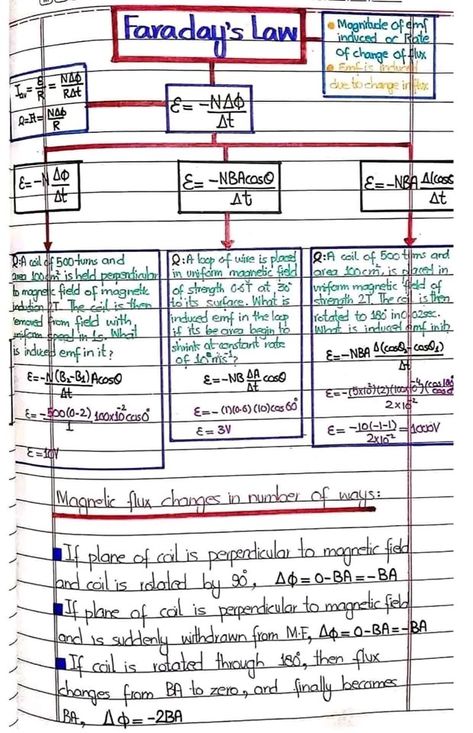 Faraday's Law
Magnitude of emf
induced ∝ Rate
Of change of flux
Emf is induced
due to change in flux
Iav = ε/R = NΔϕ/RΔt
Q=It= NΔϕ/R
ε = -NΔϕ/Δt
ε= -N Δϕ/Δt
ε= -NBAcosθ/Δt
ε= -NBA Δ(cosθ/Δt
Q: A coil of 500 turns and
area 100cm² is held perpendicular
to magnetic field of magnetic
induction 2T. The coil is then
removed from field with
uniform speed in 1s. What
is induced emf in it?
ε= -N(B₂-B₁)Acosθ/Δt
ε= -500(0-2) 100x10⁻² cos0°/1
ε= 10V
Q: A loop of wire is placed
in uniform magnetic field
of strength 0.6T at 30°
to its surface. What is
induced emf in the loop
if its be area begin to
shrink at constant rate
of ms⁻¹?
ε= -NB ΔA/Δt cosθ
ε= -(1)(0.6)(10)cos60°
ε= 3V
Q: A coil of 500 turns and
area 100cm², is placed in
uniform magnetic field of
strength 2T. The coil is then
rotated to 180° in 0.02sec.
What is induced emf in it?
ε= -NBA Δ(cosθ₂-cosθ₁)/Δt
ε= -(5x10²)(2)(100x10⁻⁴)(cos180°/2x10⁻²
ε= -10(-1-1)/2x10⁻² = 1000V
Magnetic flux changes in number of ways:
If plane of coil is perpendicular to magnetic field
and coil is rotated by 90°, Δϕ = 0-BA = -BA
If plane of coil is perpendicular to magnetic field
and is suddenly withdrawn from M.F, Δϕ = 0-BA = -BA
If coil is rotated through 180°, then flux
changes from BA to zero, and finally becomes
BA, Δϕ = -2BA